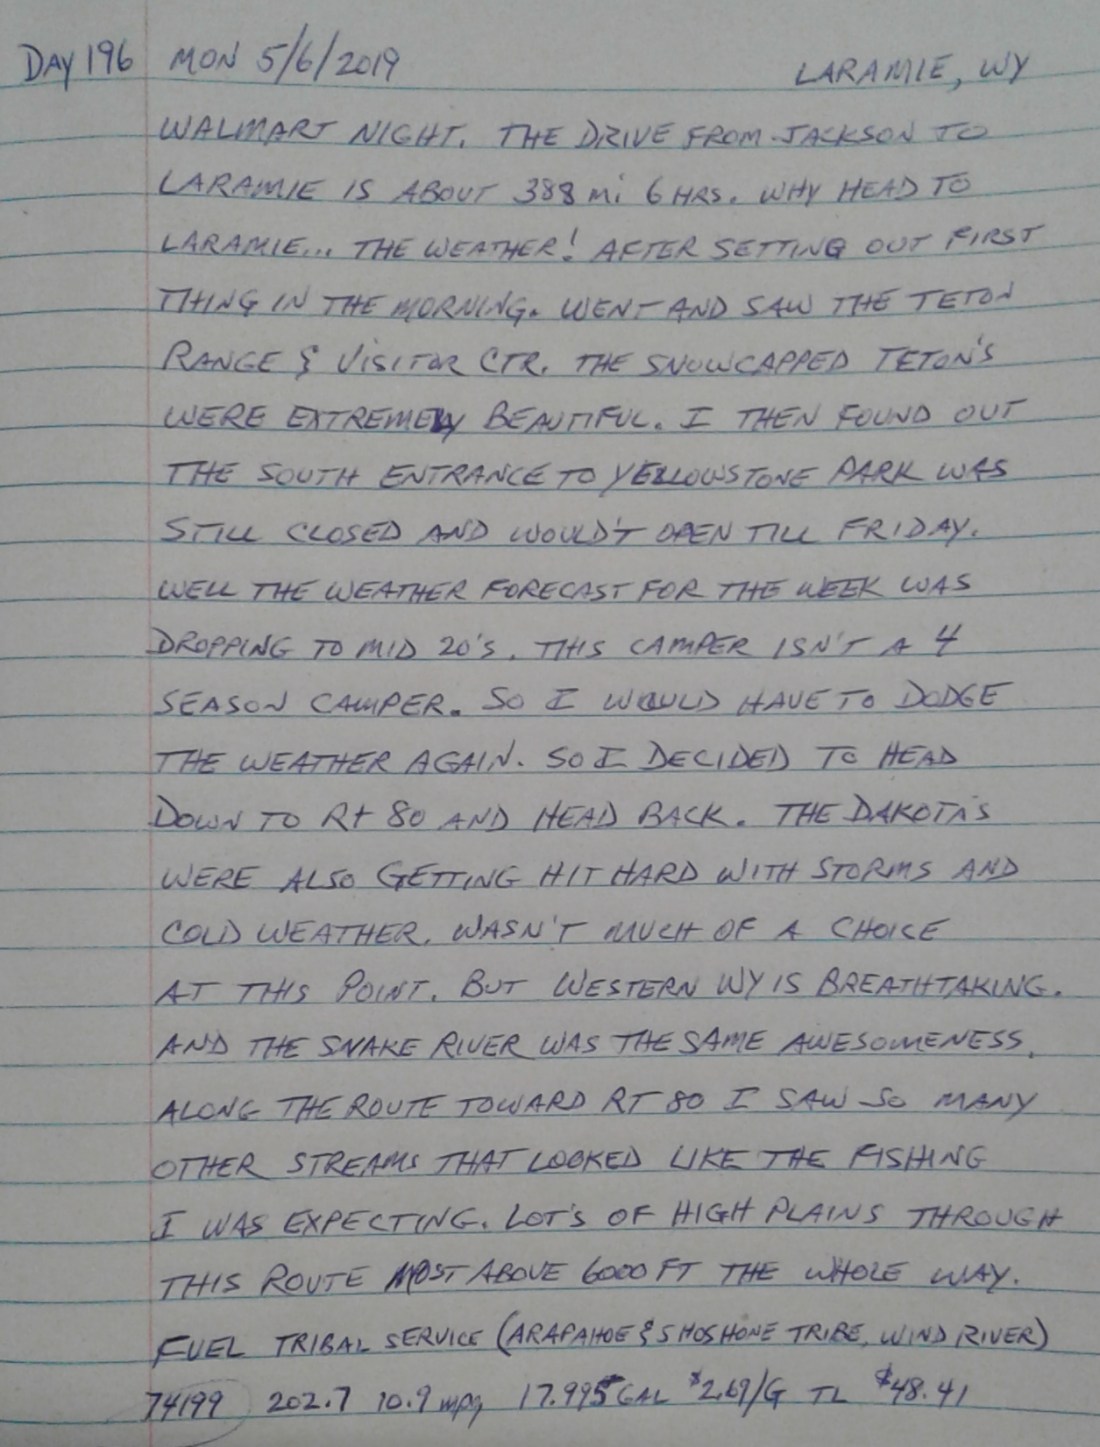 DAY 196 MON 5/6/2019 LARAMIE, WY
WALMART NIGHT. THE DRIVE FROM JACKSON TO
LARAMIE IS ABOUT 388 mi 6 HRS. WHY HEAD TO
LARAMIE... THE WEATHER! AFTER SETTING OUT FIRST
THING IN THE MORNING. WENT AND SAW THE TETON
RANGE & VISITOR CTR. THE SNOWCAPPED TETON'S
WERE EXTREMELY BEAUTIFUL. I THEN FOUND OUT
THE SOUTH ENTRANCE TO YELLOWSTONE PARK WAS
STILL CLOSED AND WOULD'T OPEN TILL FRIDAY.
WELL THE WEATHER FORECAST FOR THE WEEK WAS
DROPPING TO MID 20'S. THIS CAMPER ISN'T A 4
SEASON CAMPER. SO I WOULD HAVE TO DODGE
THE WEATHER AGAIN. SO I DECIDED TO HEAD
DOWN TO Rt 80 AND HEAD BACK. THE DAKOTA'S
WERE ALSO GETTING HIT HARD WITH STORMS AND
COLD WEATHER. WASN'T MUCH OF A CHOICE
AT THIS POINT. BUT WESTERN WY IS BREATHTAKING.
AND THE SNAKE RIVER WAS THE SAME AWESOMENESS.
ALONG THE ROUTE TOWARD RT 80 I SAW SO MANY
OTHER STREAMS THAT LOOKED LIKE THE FISHING
I WAS EXPECTING. LOT'S OF HIGH PLAINS THROUGH
THIS ROUTE MOST ABOVE 6000 FT THE WHOLE WAY.
FUEL TRIBAL SERVICE (ARAPAHOE & SHOSHONE TRIBE, WIND RIVER)
74199 202.7 10.9 mpg 17.995 GAL $2.69/G TL $48.41